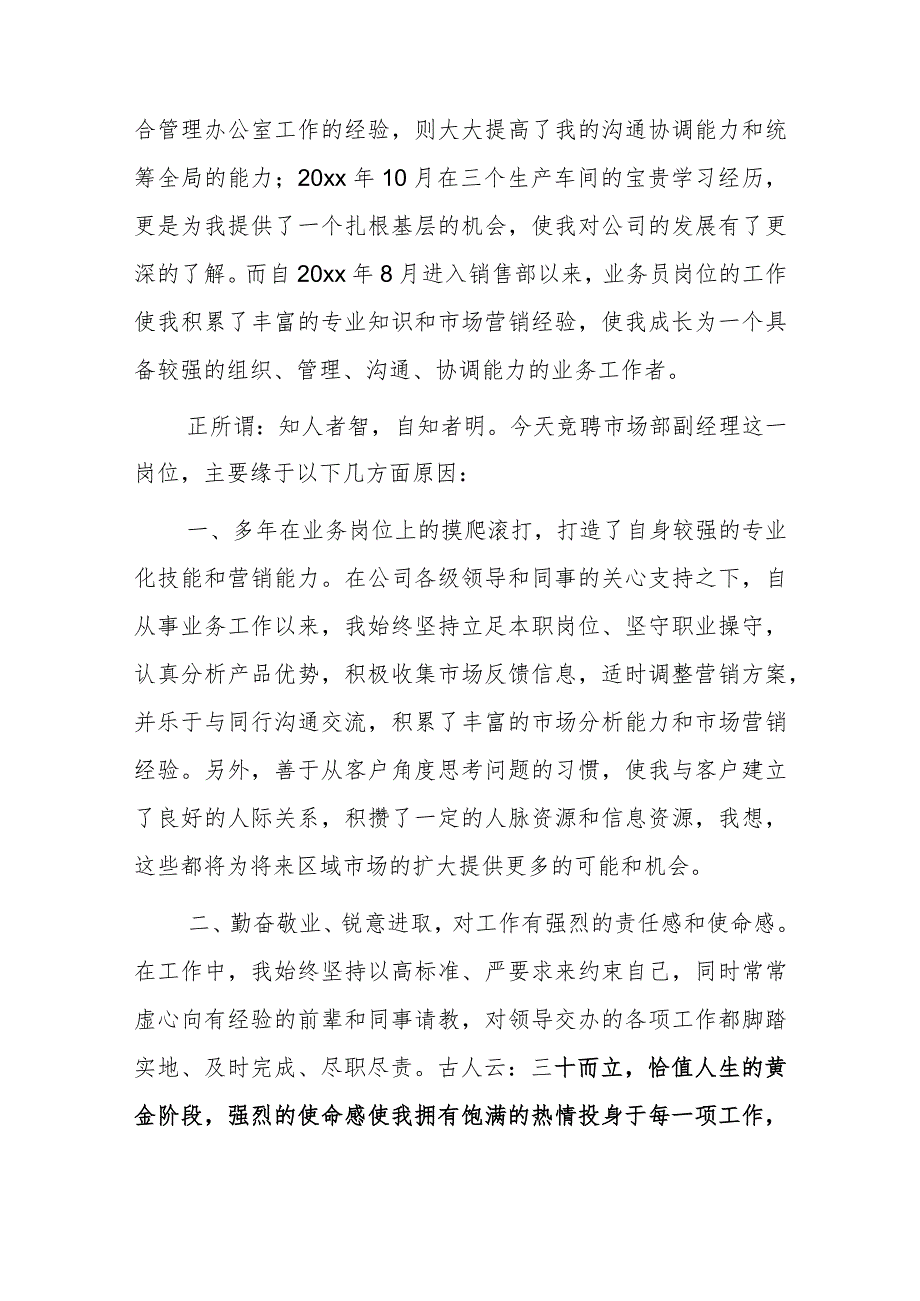 合管理办公室工作的经验，则大大提高了我的沟通协调能力和统
筹全局的能力；20xx 年 10 月在三个生产车间的宝贵学习经历，
更是为我提供了一个扎根基层的机会，使我对公司的发展有了更
深的了解。而自 20xx 年 8 月进入销售部以来，业务员岗位的工作
使我积累了丰富的专业知识和市场营销经验，使我成长为一个具
备较强的组织、管理、沟通、协调能力的业务工作者。
正所谓：知人者智，自知者明。今天竞聘市场部副经理这一
岗位，主要缘于以下几方面原因：
一、多年在业务岗位上的摸爬滚打，打造了自身较强的专业
化技能和营销能力。在公司各级领导和同事的关心支持之下，自
从事业务工作以来，我始终坚持立足本职岗位、坚守职业操守，
认真分析产品优势，积极收集市场反馈信息，适时调整营销方案，
并乐于与同行沟通交流，积累了丰富的市场分析能力和市场营销
经验。另外，善于从客户角度思考问题的习惯，使我与客户建立
了良好的人际关系，积攒了一定的人脉资源和信息资源，我想，
这些都将为将来区域市场的扩大提供更多的可能和机会。
二、勤奋敬业、锐意进取，对工作有强烈的责任感和使命感。
在工作中，我始终坚持以高标准、严要求来约束自己，同时常常
虚心向有经验的前辈和同事请教，对领导交办的各项工作都脚踏
实地、及时完成、尽职尽责。古人云：三十而立，恰值人生的黄
金阶段，强烈的使命感使我拥有饱满的热情投身于每一项工作，